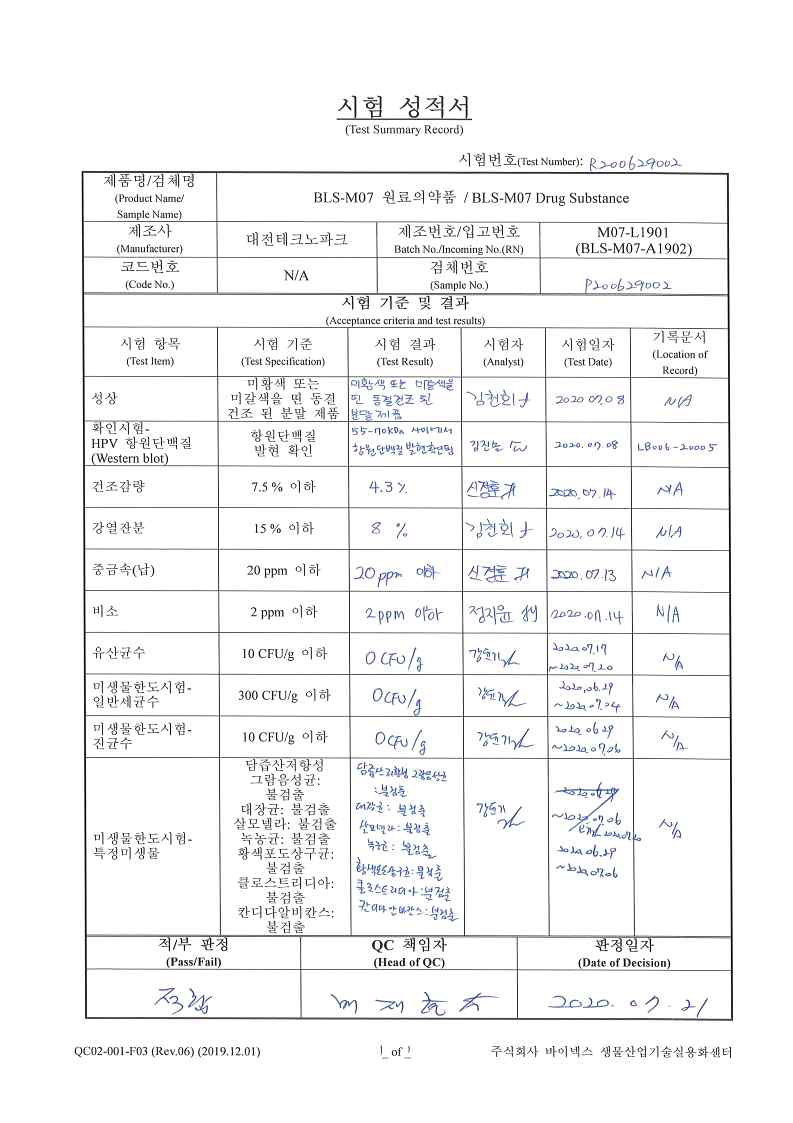 시험 성적서
(Test Summary Record)
시험번호(Test Number): R200629002
제품명/검체명
(Product Name/
Sample Name)
BLS-M07 원료의약품 / BLS-M07 Drug Substance
제조사
(Manufacturer)
대전테크노파크
제조번호/입고번호
Batch No./Incoming No.(RN)
M07-L1901
(BLS-M07-A1902)
코드번호
(Code No.)
N/A
검체번호
(Sample No.)
P200629002
시험 기준 및 결과
(Acceptance criteria and test results)
시험 항목
(Test Item)
시험 기준
(Test Specification)
시험 결과
(Test Result)
시험자
(Analyst)
시험일자
(Test Date)
기록문서
(Location of
Record)
성상
미황색 또는
미갈색을 띤 동결
건조 된 분말 제품
미황색 또는 미갈색을
띤 동결건조 된
분말제품
김천회
2020.07.08
N/A
확인시험-
HPV 항원단백질
(Western blot)
항원단백질
발현 확인
55-70kDa 사이에서
항원단백질 발현확인됨
2020.07.08
LB006-20005
건조감량
7.5 % 이하
4.3 %
신경훈
2020.07.14
N/A
강열잔분
15 % 이하
8 %
김천회
2020.07.14
N/A
중금속(납)
20 ppm 이하
20ppm 이하
신경훈
2020.07.13
N/A
비소
2 ppm 이하
2ppm 이하
정지윤
2020.07.14
N/A
유산균수
10 CFU/g 이하
0 CFU/g
강윤기
2020.07.17
~2020.07.20
N/A
미생물한도시험-
일반세균수
300 CFU/g 이하
0 CFU/g
강윤기
2020.06.29
~2020.07.04
N/A
미생물한도시험-
진균수
10 CFU/g 이하
0 CFU/g
강윤기
2020.06.29
~2020.07.06
N/A
미생물한도시험-
특정미생물
담즙산저항성
그람음성균:
불검출
대장균: 불검출
살모넬라: 불검출
녹농균: 불검출
황색포도상구균:
불검출
클로스트리디아:
불검출
칸디다알비칸스:
불검출
담즙산저항성 그람음성균
:불검출
대장균: 불검출
살모넬라: 불검출
녹농균: 불검출
황색포도상구균:불검출
클로스트리디아:불검출
칸디다알비칸스:불검출
강윤기
2020.06.29
~2020.07.06
2020.06.29
~2020.07.06
N/A
적/부 판정
(Pass/Fail)
QC 책임자
(Head of QC)
판정일자
(Date of Decision)
적합
2020.07.21
QC02-001-F03 (Rev.06) (2019.12.01)
1 of 1
주식회사 바이넥스 생물산업기술실용화센터